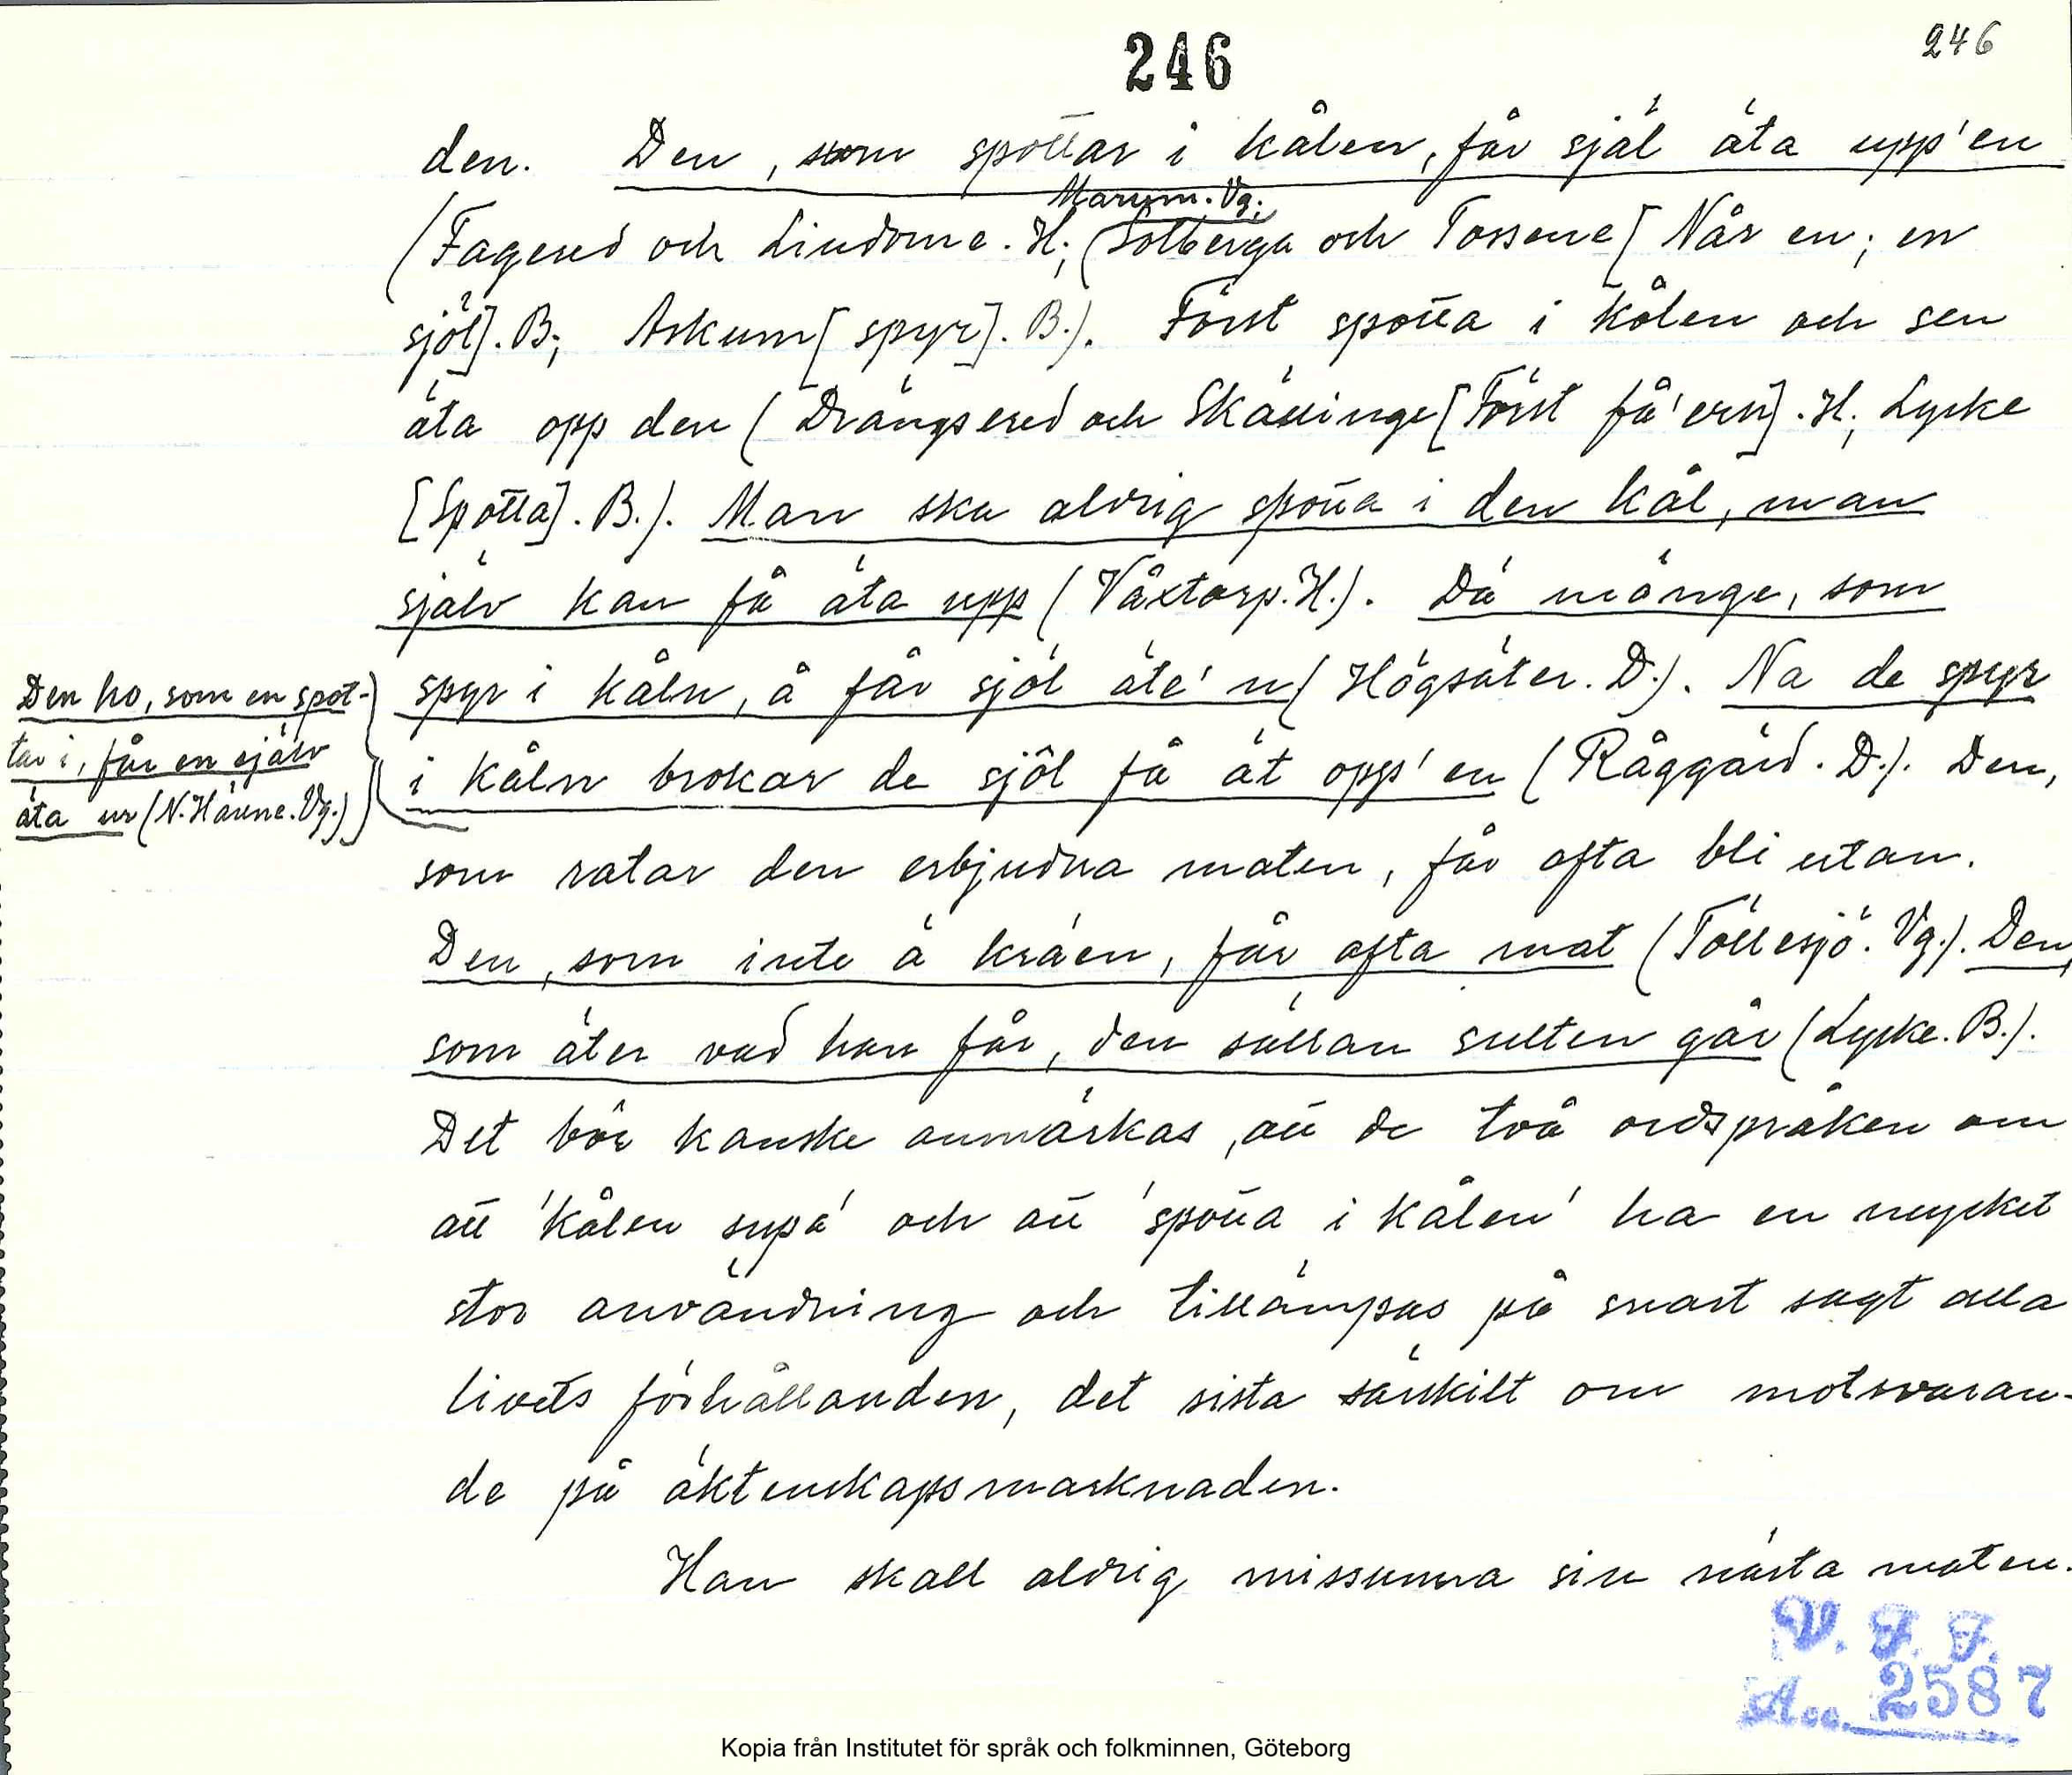 246
246
den. Den, som spottar i kålen, får själ äta upp'en
Marum. Vg.;
(Fagered och Lindome. H; Solberga och Tossene [Når en; en
sjöl]. B; Askum [spyr]. B.). Först spotta i kålen och sen
äta opp den (Drängsered och Skällinge [Först få'ern]. H; Lycke
[Spotta]. B.). Man ska aldrig spotta i den kål, man
själv kan få äta upp (Våxtorp. H.). Dä månge, som
spyr i kåln, å får sjöl äte'n (Högsäter. D.). Na de spyr
i kåln brokar de sjôl få ät opp'en (Råggärd. D.). Den,
Den ho, som en spot-
tar i, får en själv
äta ur (N. Härene. Vg.)
som ratar den erbjudna maten, får ofta bli utan.
Den, som inte ä kräen, får ofta mat (Töllesjö. Vg.). Den,
som äter vad han får, den sällan sulten går (Lycke. B.).
Det bör kanske anmärkas, att de två ordspråken om
att 'kålen supa' och att 'spotta i kålen' ha en mycket
stor användning och tillämpas på snart sagt alla
livets förhållanden, det sista särskilt om motsvaran-
de på äktenskapsmarknaden.
Han skall aldrig missunna sin nästa maten.
V. F. F.
Acc. 2587
Kopia från Institutet för språk och folkminnen, Göteborg